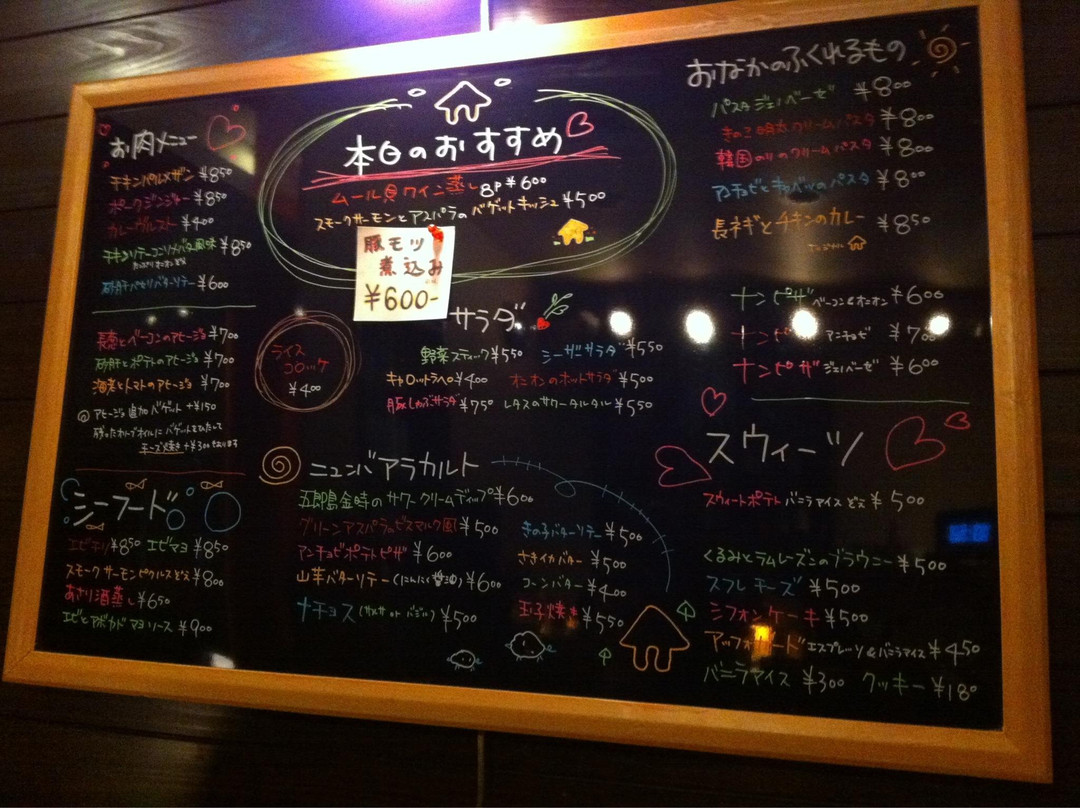 お肉メニュー
チキンパルメザン ¥850
ポークジンジャー ¥850
カレーヴルスト ¥400
¥850
砂肝とパセリバターソテー ¥600
長葱とベーコンのアヒージョ ¥700
砂肝とポテトのアヒージョ ¥700
海老とトマトのアヒージョ ¥700
アヒージョ追加バゲット +¥150
残ったオリーブオイルにバゲットをひたして
チーズ焼き +¥300 でおります
シーフード
エビチリ ¥850 エビマヨ ¥850
スモークサーモンピクルス どえ ¥800
あさり酒蒸し ¥650
エビとアボカドマヨソース ¥900
本日のおすすめ
ムール貝ワイン蒸し 8P ¥600
スモークサーモンとアスパラのバゲットキッシュ ¥500
豚モツ
煮込み
¥600-
ライス
コロッケ
¥400
サラダ
野菜スティック ¥550 シーザーサラダ ¥550
キャロットラペ ¥400 オニオンのホットサラダ ¥500
豚しゃぶサラダ ¥750 レタスのサワータルタル ¥550
ニュンバアラカルト
五郎島金時のサワークリームディップ ¥600
グリーンアスパラのビスマルク風 ¥500
アンチョビポテトピザ ¥600
山芋バターソテー(にんにく醤油) ¥600
ナチョス ¥500
きの子バターソテー ¥500
さきイカバター ¥500
コーンバター ¥400
玉子焼き ¥550
おなかのふくれるもの
パスタジェノベーゼ ¥800
きのこ明太クリームパスタ ¥800
韓国のりのクリームパスタ ¥800
アンチョビとキャベツのパスタ ¥800
長ネギとチキンのカレー ¥850
ナンピザ ベーコン&オニオン ¥600
ナンピザ アンチョビ ¥700
ナンピザ ジェノベーゼ ¥600
スウィーツ
スウィートポテト バニラアイスどえ ¥500
くるみとラムレーズンのブラウニー ¥500
スフレチーズ ¥500
シフォンケーキ ¥500
アッフォガード エスプレッソ&バニラアイス ¥450
バニラアイス ¥300 クッキー ¥180